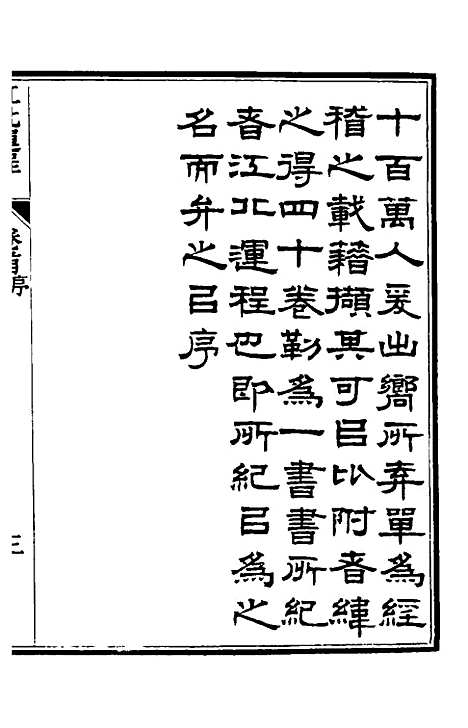 十百萬人爰出嚮所弃單為經
稽之載籍擷其可㠯比附者緯
之得四十卷勒為一書書所紀
者江北運程也即所紀㠯為之
名而弁之㠯序
江北運程
卷首序
三